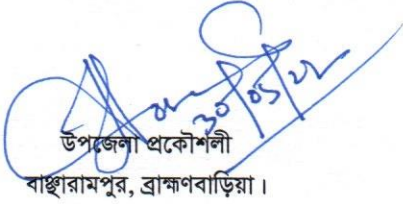 30/05/22
উপজেলা প্রকৌশলী
বাঞ্ছারামপুর, ব্রাহ্মণবাড়িয়া।